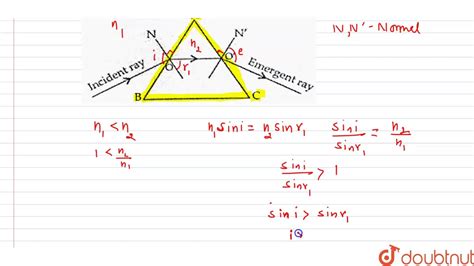 n₁
N N'
N, N' - Normal
i n₂ O' e
G r₁
Incident ray
Emergent ray
B C
n₁ < n₂
1 < n₂/n₁
n₁ sin i = n₂ sin r₁
sin i / sin r₁ = n₂ / n₁
sin i / sin r₁ > 1
sin i > sin r₁
i
doubtnut